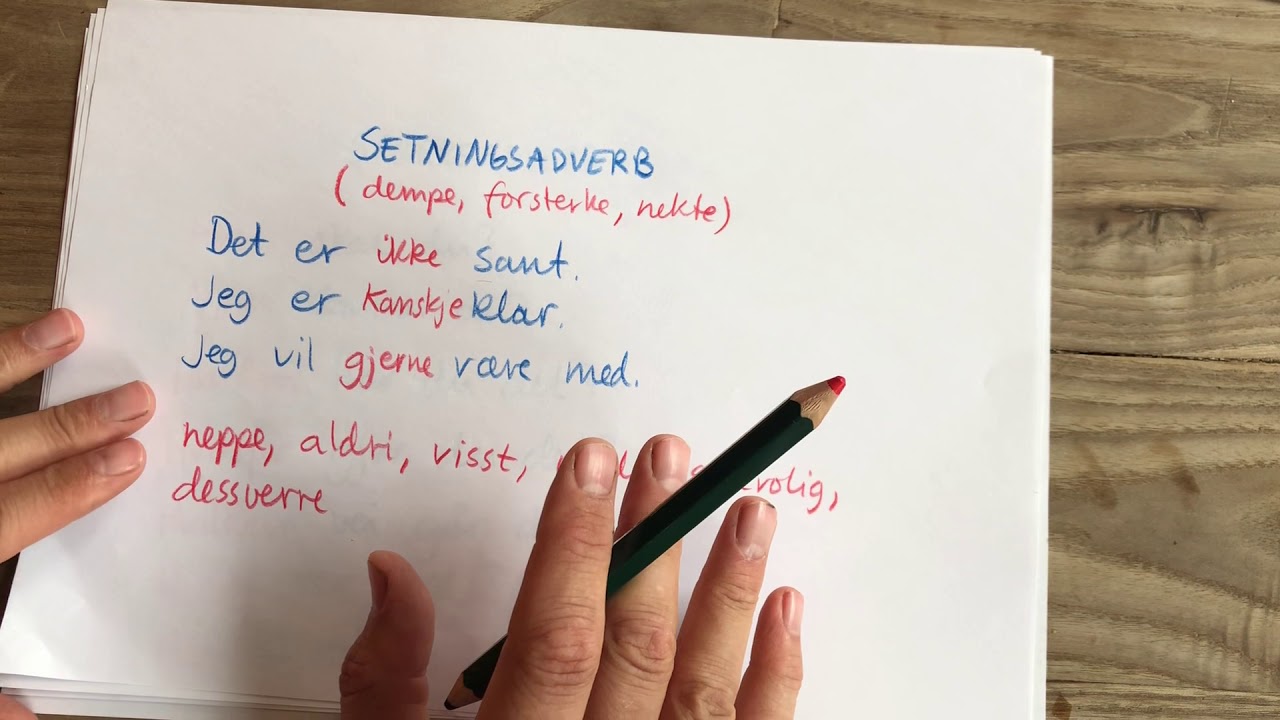 SETNINGSADVERB
(dempe, forsterke, nekte)
Det er ikke sant.
Jeg er kanskje klar.
Jeg vil gjerne være med.
neppe, aldri, visst,
dessverre